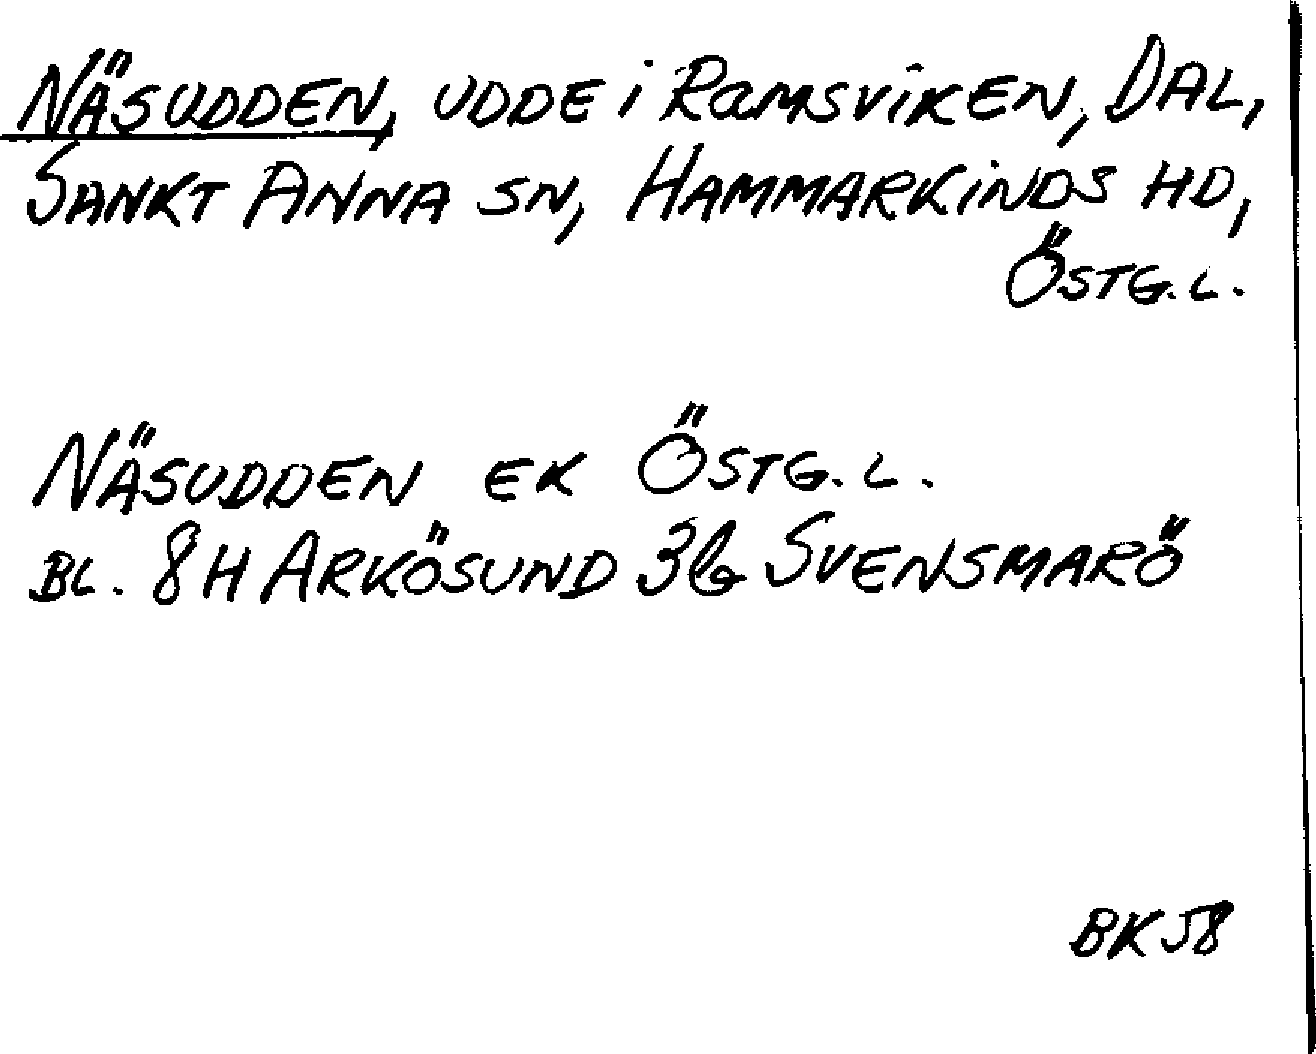 NÄSUDDEN, UDDE i RAMSVIKEN, DAL,
SANKT ANNA SN, HAMMARKINDS HD,
ÖSTG.L.
NÄSUDDEN EK ÖSTG.L.
BL. 8H ARKÖSUND 3b SVENSMARÖ
BK 58